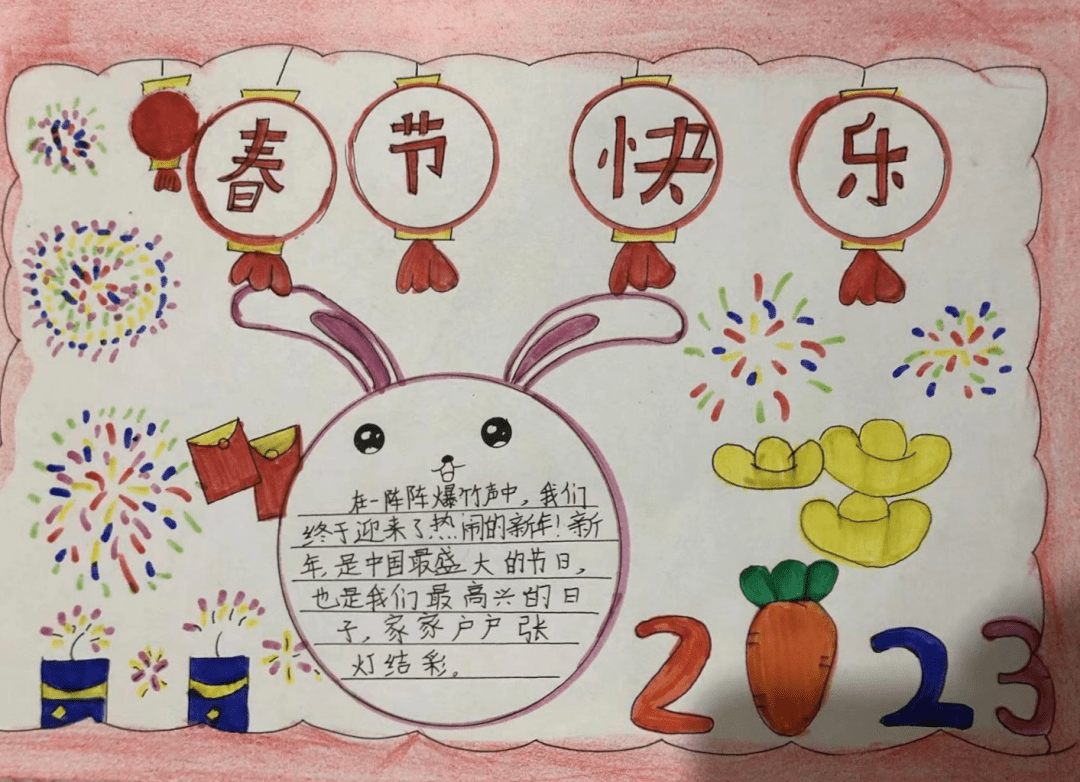 春节快乐
在一阵阵爆竹声中，我们
终于迎来了热闹的新年！新
年，是中国最盛大的节日，
也是我们最高兴的日
子，家家户户张
灯结彩。
2023